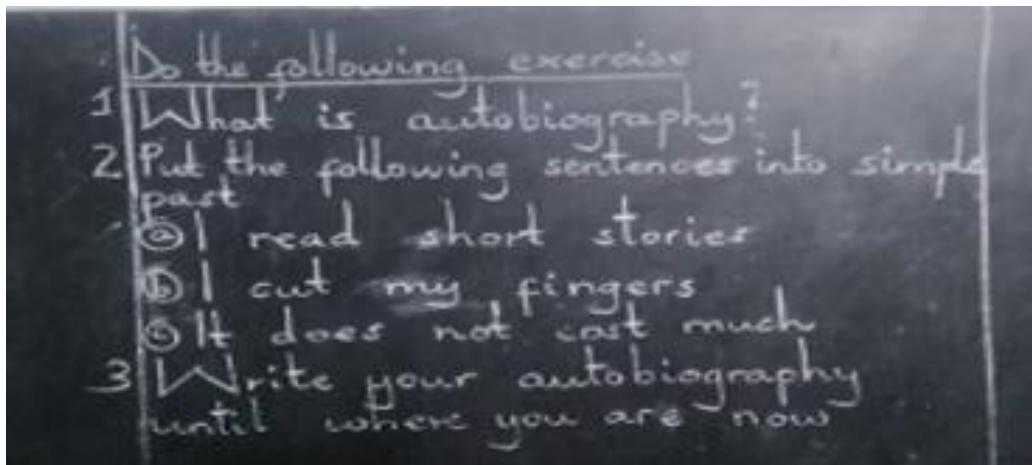 Do the following exercise
1 What is autobiography?
2 Put the following sentences into simple
past
ⓐ I read short stories
ⓑ I cut my fingers
ⓒ It does not cost much
3 Write your autobiography
until where you are now